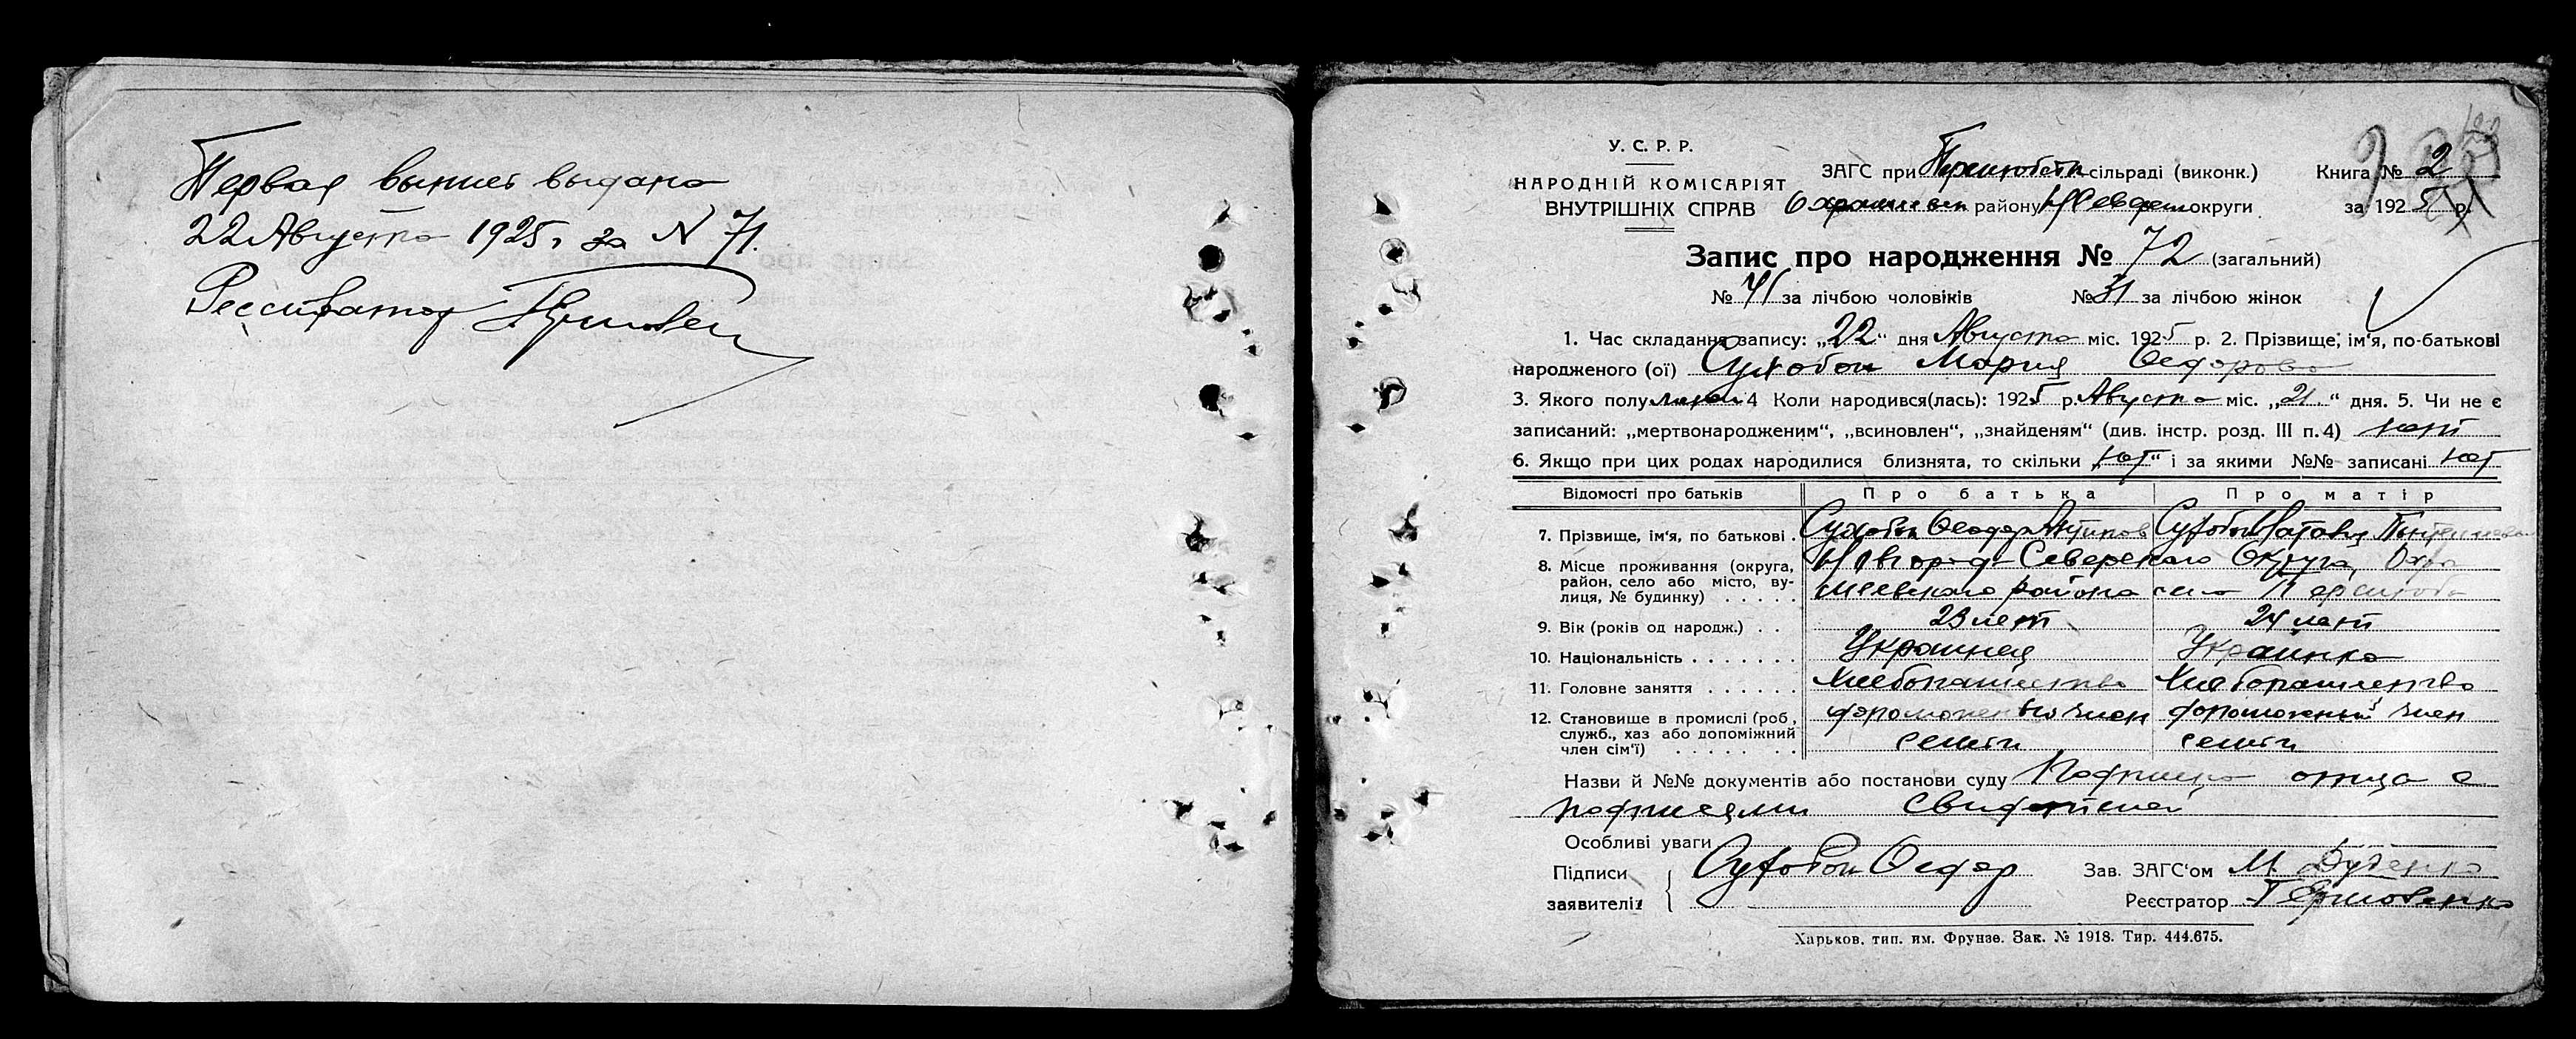 Первая выпись выдана
22 Августа 1925 г за N 71.
Регистратор
У. С. Р. Р.
НАРОДНІЙ КОМІСАРІЯТ
ВНУТРІШНІХ СПРАВ
ЗАГС при сільраді (виконк.)
району округи
Книга № 2
за 1925 р.
Запис про народження № 72 (загальний)
№ 41 за лічбою чоловіків № 31 за лічбою жінок
1. Час складання запису: „22“ дня Августа міс. 1925 р. 2. Прізвище, ім'я, по-батькові
народженого (ої) Сухобок Мария Федорова
3. Якого полу 4 Коли народився(лась): 1925 р. Августа міс. „21.“ дня. 5. Чи не є
записаний: „мертвонародженим“, „всиновлен“, „знайденям“ (див. інстр. розд. III п. 4) нет
6. Якщо при цих родах народилися близнята, то скільки „нет“ і за якими №№ записані нет
Відомості про батьків Про батька Про матір
7. Прізвище, ім'я, по батькові . Сухобок Федор Антипов Сухобок Наталия
8. Місце проживання (округа,
район, село або місто, ву-
лиця, № будинку) . . . . .
Новгород-Северского Округа,
района село
9. Вік (років од народж.) . . 23 лет 24 лет
10. Національність . . . . . . . Украинец Украінка
11. Головне заняття . . . . . . Хлебопашество Хлебопашество
12. Становище в промислі (роб,
служб., хаз або допоміжний
член сім'ї) . . . . . . .
член семьи член семьи
Назви й №№ документів або постанови суду Подписка отца с
подписями свидетелей
Особливі уваги
Підписи
заявителів
Сухобок Федор
Зав. ЗАГС'ом М. Дученко
Реєстратор Г Ермоленко
Харьков, тип. им. Фрунзе. Зак. № 1918. Тир. 444.675.